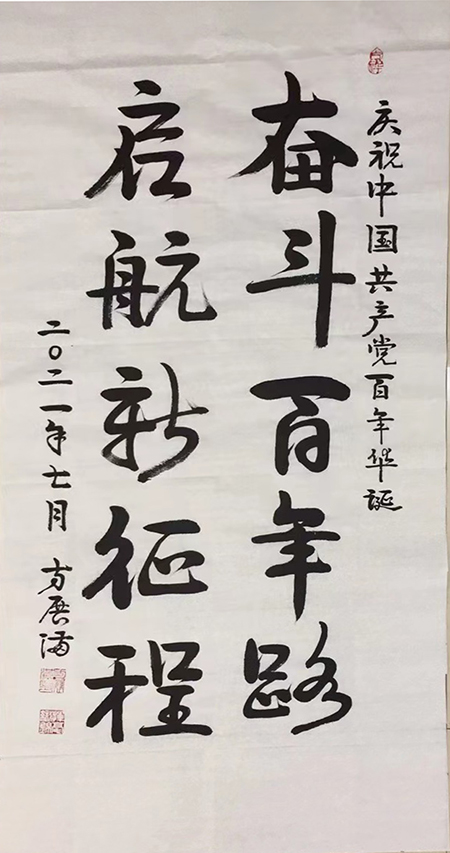 庆祝中国共产党百年华诞
奋斗百年路
启航新征程
二〇二一年七月
方展满